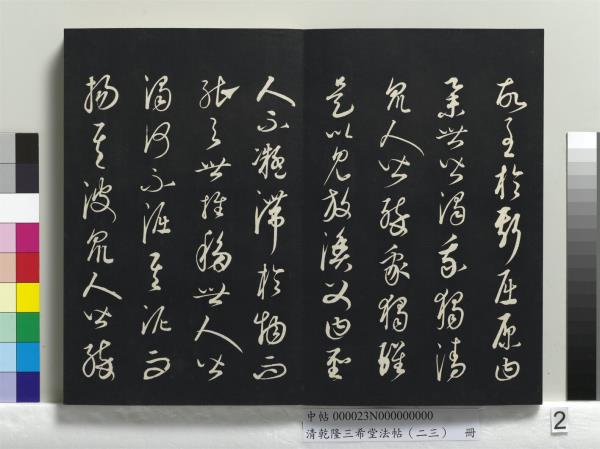 故至於斯屈原曰
舉世皆濁我獨清
眾人皆醉我獨醒
是以見放漁父曰聖
人不凝滯於物而
能與世推移世人皆
濁何不淈其泥而
揚其波眾人皆醉
中帖 000023N000000000
清乾隆三希堂法帖（二三） 冊
2